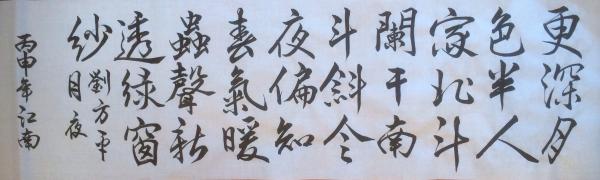 更深月
色半人
家北斗
闌干南
斗斜今
夜偏知
春氣暖
蟲聲新
透綠窗
紗劉方平
月夜
丙申年江南